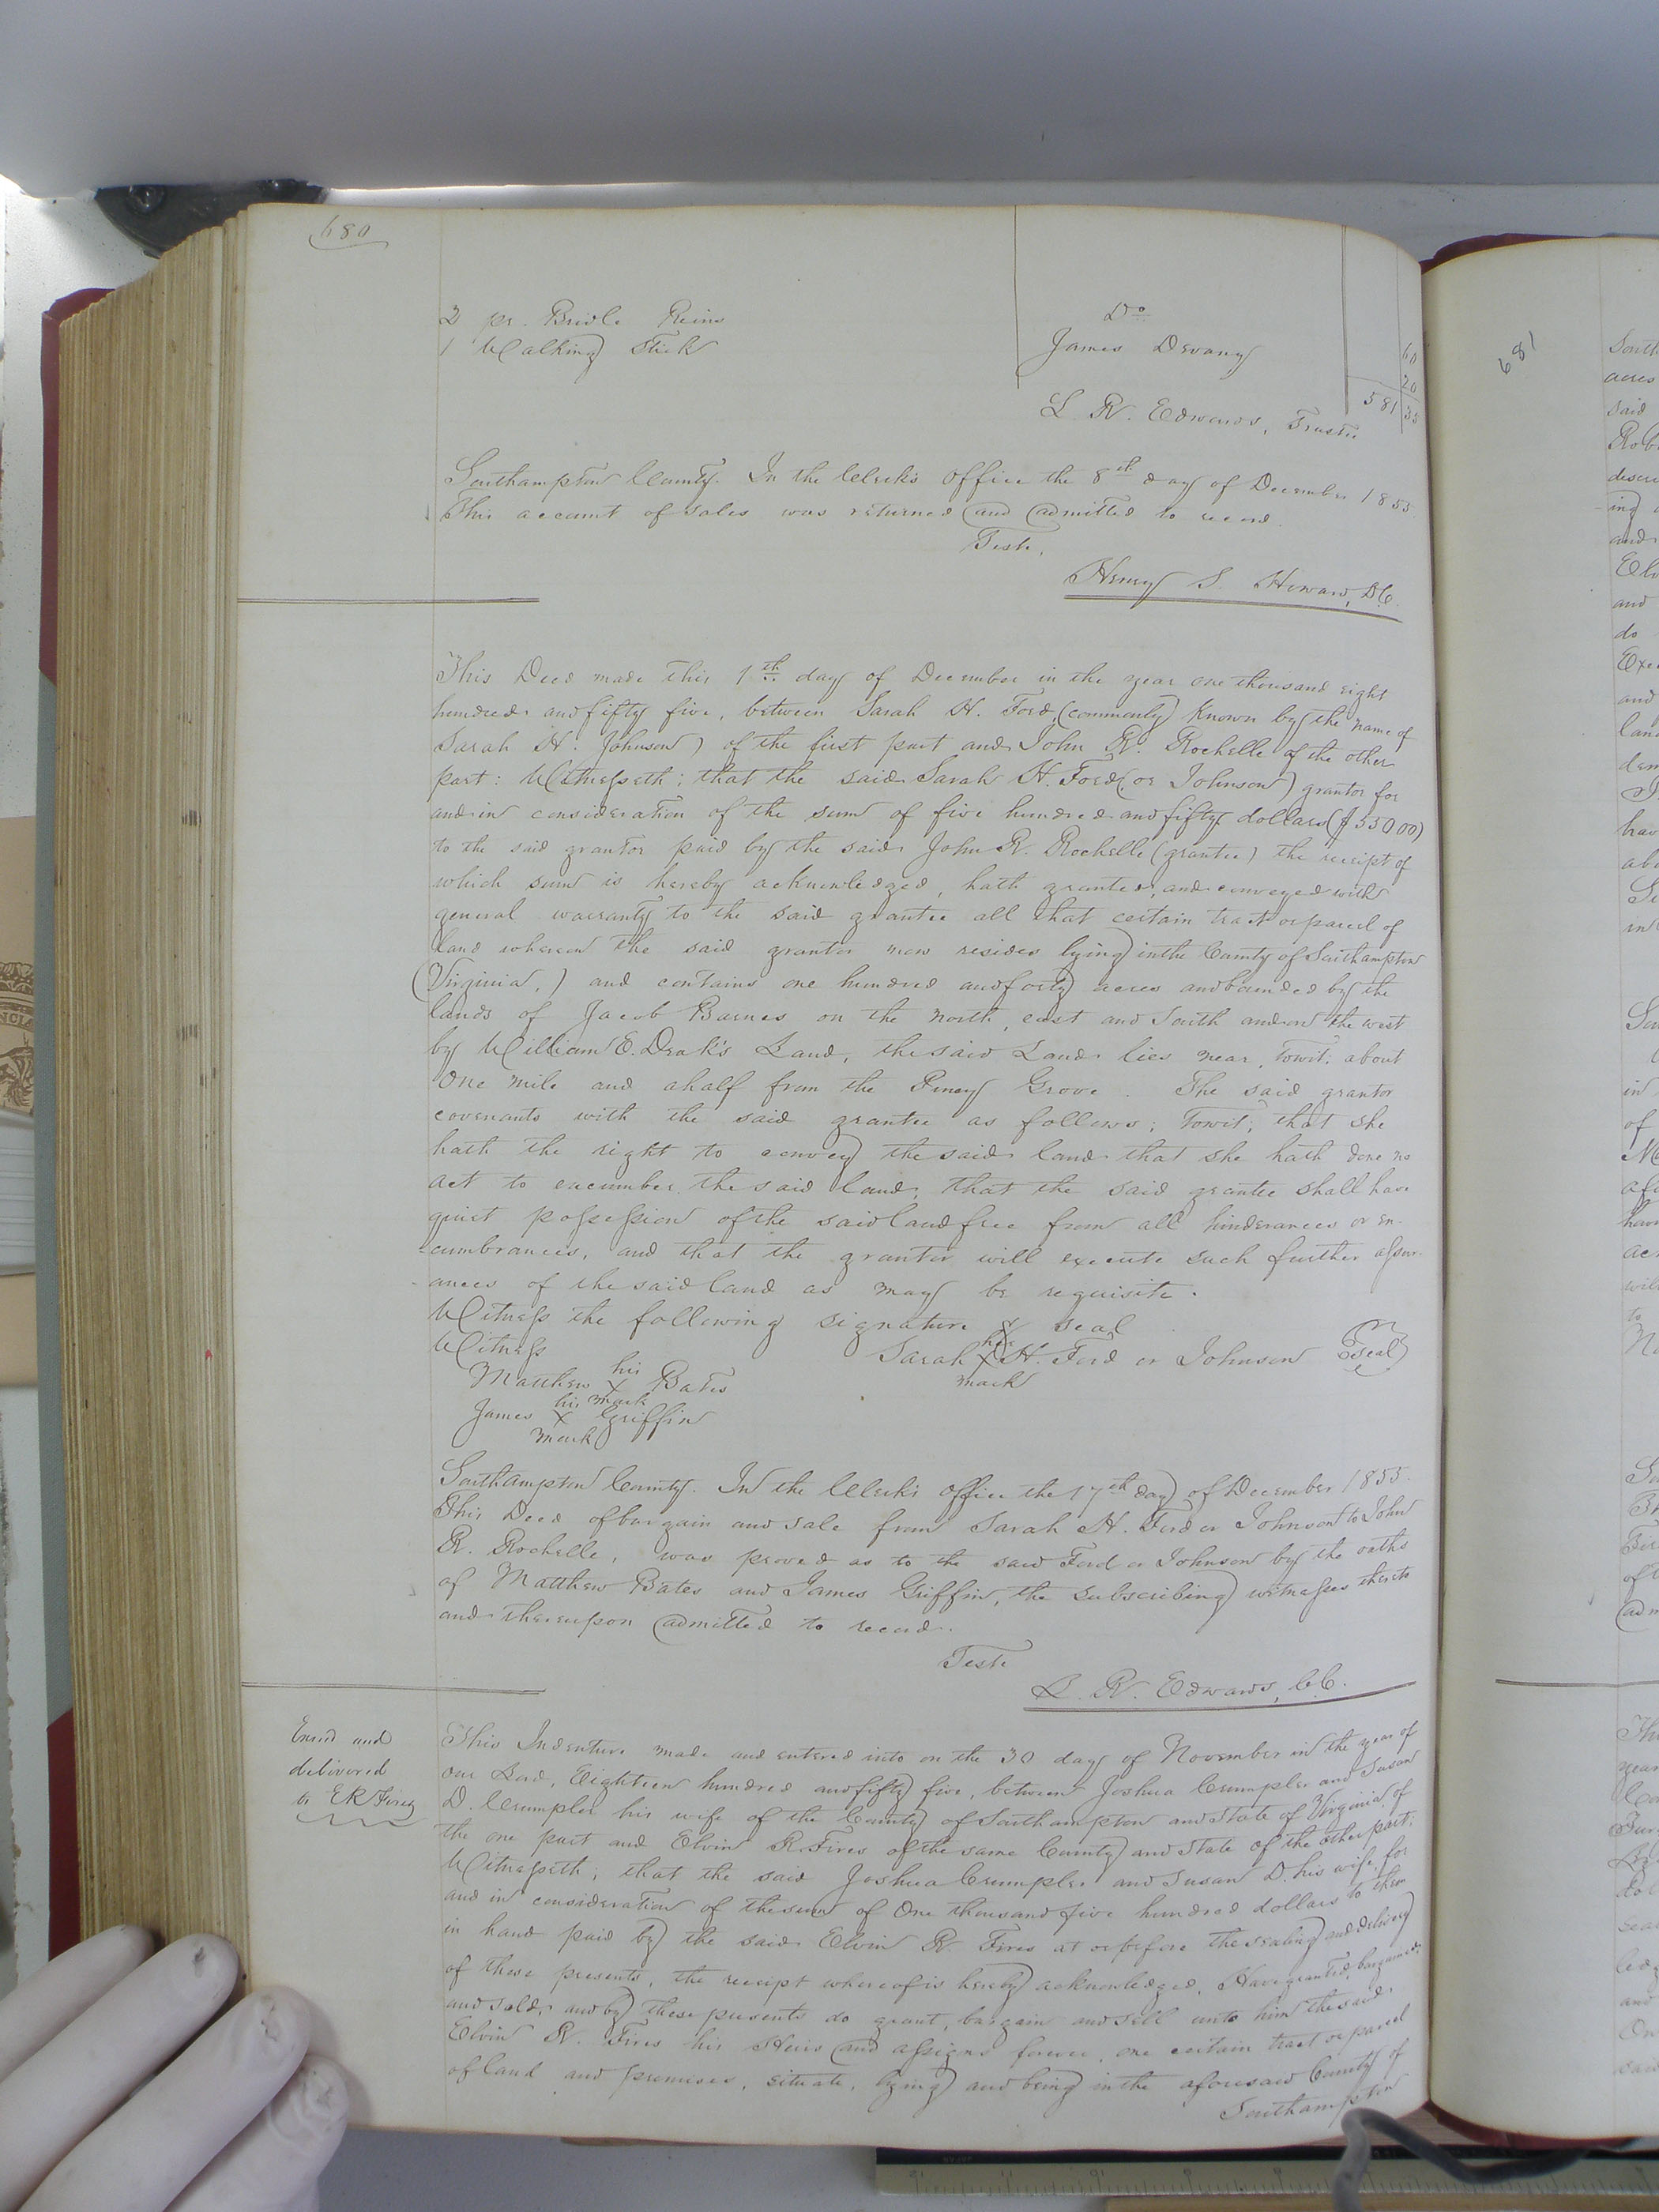 680
2 pr. Bridle Reins Do 60
1 Walking Stick James Devany 20
581 35
L. R. Edwards, Trustee
Southampton County. In the Clerk's Office the 8th day of December 1855.
This account of sales was returned and admitted to record.
Teste,
Henry S. Howard, D.C.
This Deed made this 1th day of December in the year one thousand eight
hundred and fifty five, between Sarah H. Ford (commonly known by the name of
Sarah H. Johnson) of the first part and John R. Rochelle of the other
part: Witnesseth: that the said Sarah H. Ford (or Johnson) grantor for
and in consideration of the sum of five hundred and fifty dollars ($550 00)
to the said grantor paid by the said John R. Rochelle (grantee) the receipt of
which sum is hereby acknowledged, hath granted, and conveyed with
general warranty to the said grantee all that certain tract or parcel of
land whereon the said grantor now resides lying in the County of Southampton
(Virginia,) and contains one hundred and forty acres and bounded by the
lands of Jacob Barnes on the north, east and South and on the west
by William E. Drak's Land, the said Land lies near, Towit: about
One mile and a half from the Piney Grove. The said grantor
covenants with the said grantee as follows; Towit; that she
hath the right to convey the said land that she hath done no
act to encumber the said land, that the said grantee shall have
quiet possession of the said land free from all hinderances or en-
-cumbrances, and that the grantor will execute such further assur-
-ances of the said land as may be requisite.
Witness the following signature & seal
Witness Sarah her X mark H. Ford or Johnson Seal
Matthew his X mark Bates
James his X mark Griffin
Southampton County. In the Clerk's Office the 17th day of December 1855.
This Deed of bargain and sale from Sarah H. Ford or Johnson to John
R. Rochelle, was proved as to the said Ford or Johnson by the oaths
of Matthew Bates and James Griffin, the subscribing witnesses thereto
and thereupon admitted to record.
Teste
L. R. Edwards, C.C.
and
delivered
to E R
This Indenture made and entered into on the 30 day of November in the year of
our Lord, Eighteen hundred and fifty five, between Joshua Crumpler and Susan
D. Crumpler his wife of the County of Southampton and State of Virginia of
the one part and Elvin R. Fires of the same County and State of the other part:
Witnesseth; that the said Joshua Crumpler and Susan D. his wife, for
and in consideration of the sum of One thousand five hundred dollars to them
in hand paid by the said Elvin R. Fires at or before the sealing and delivery
of these presents, the receipt whereof is hereby acknowledged, Have granted, bargained
and sold, and by these presents do grant, bargain and sell unto him the said
Elvin R. Fires his Heirs and assigns forever, one certain tract or parcel
of land and premises, situate, lying and being in the aforesaid County of
Southampton
681